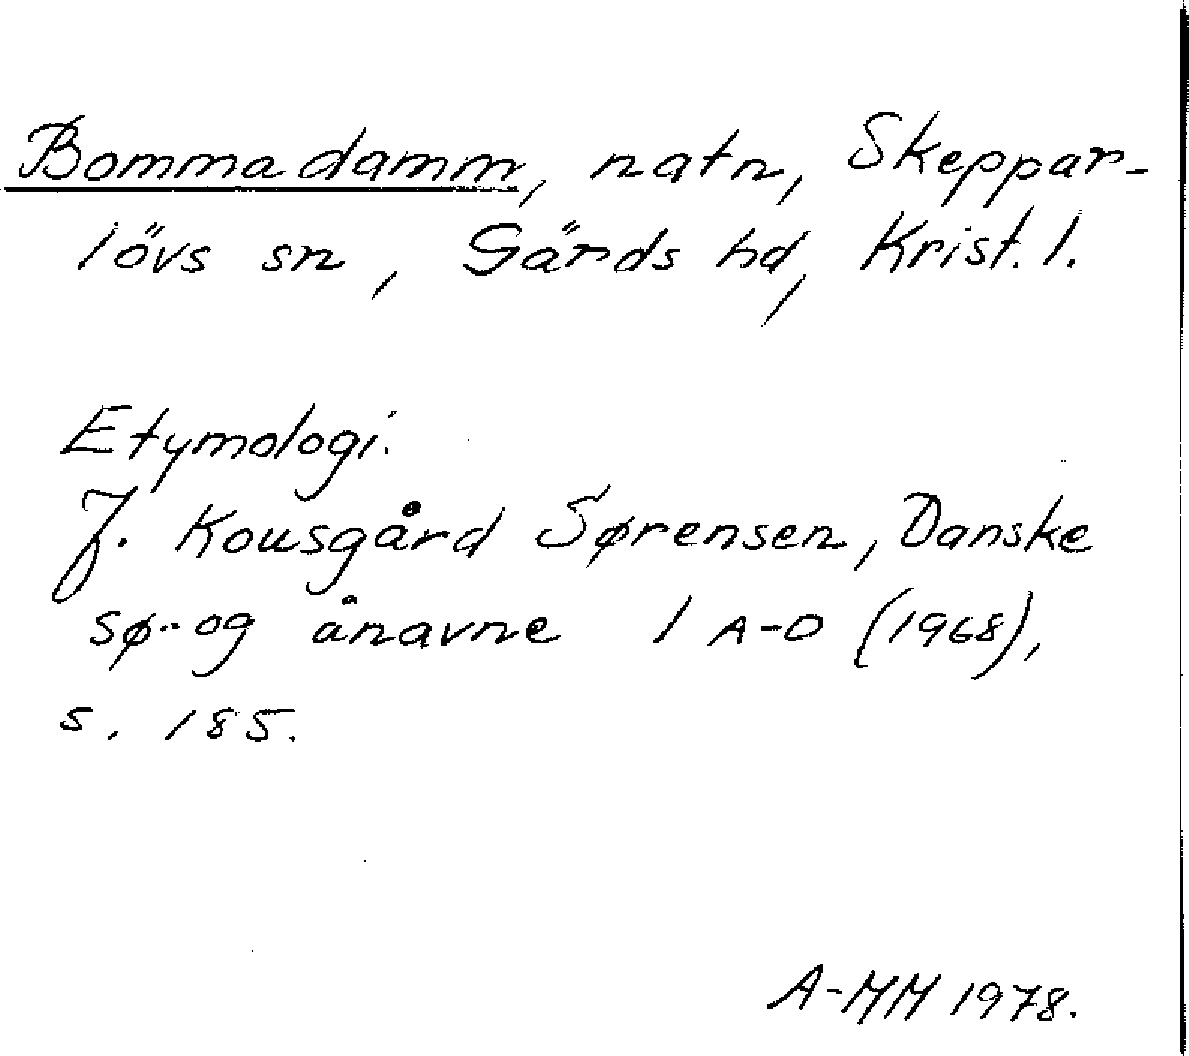 Bommadamm, natn, Skeppar-
lövs sn, Gärds hd, Krist. l.
Etymologi.
J. Kousgård Sørensen, Danske
sø- og ånavne 1 A-D (1968),
s. 185.
A-MM 1978.